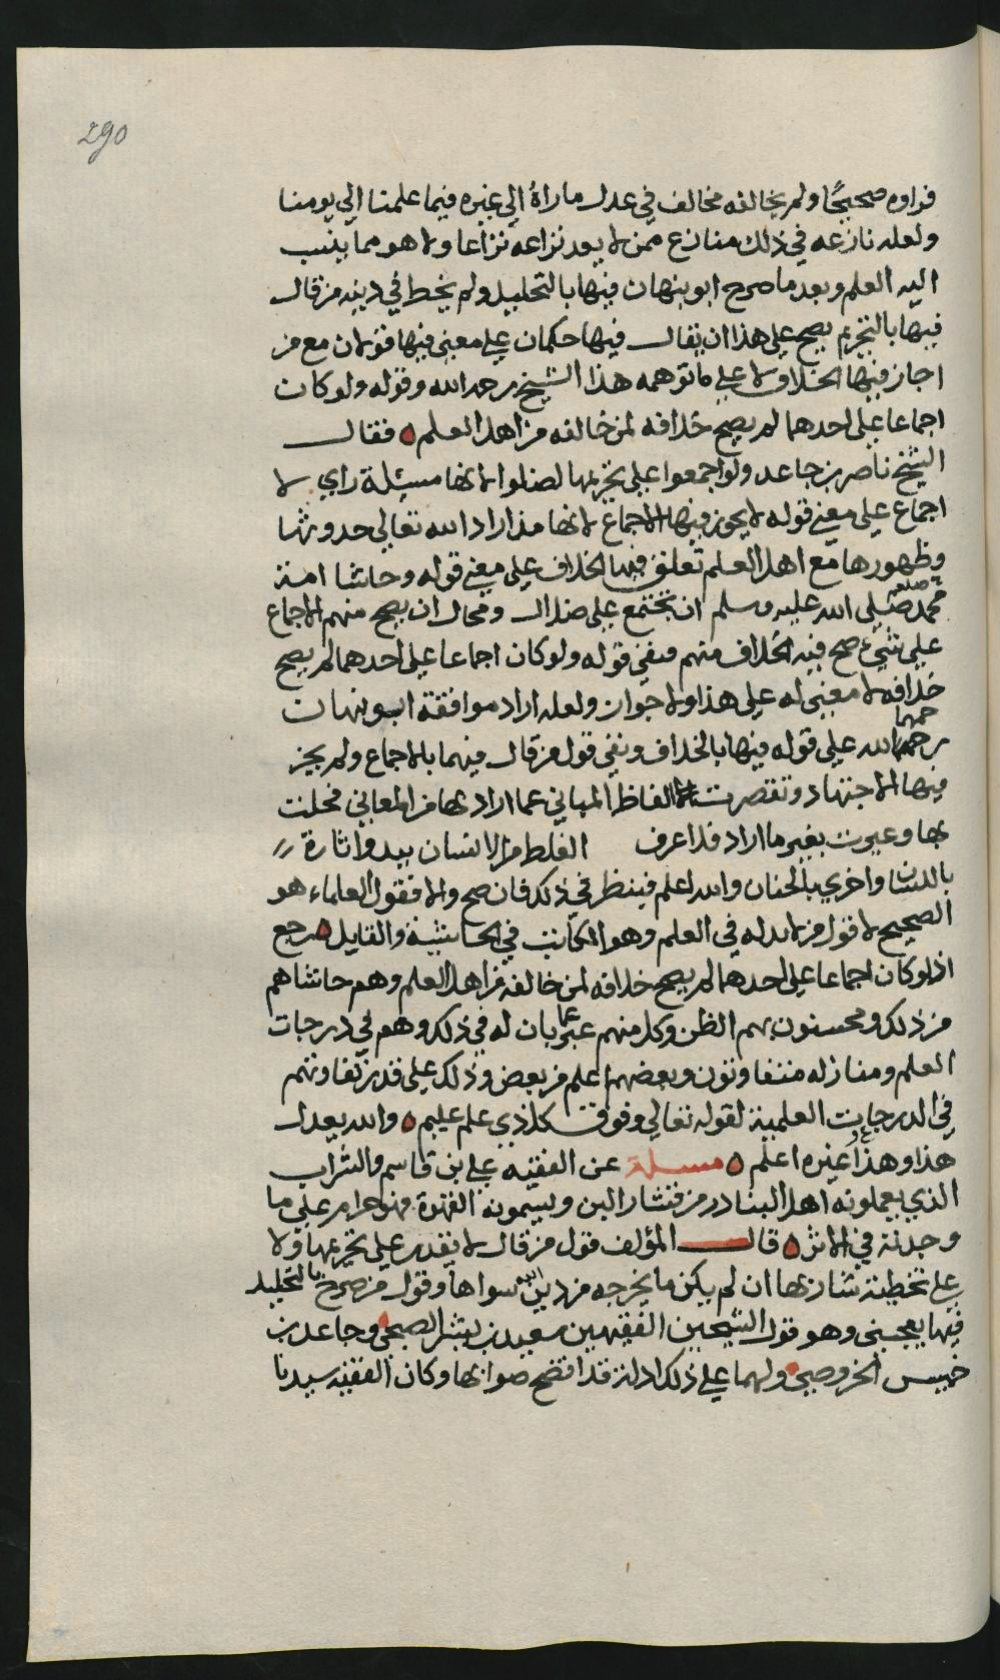 290
فراوه صحيحًا ولم يخالفه مخالف في عدل ماراهُ الي غيره فيما علمنا الي يومنا
ولعله نازعه في ذلك منازع ممن لا يعد نزاعه نزاعا ولا هو مما ينسب
اليه العلم وبعد ما صرح ابو نبهان فيها بالتحليل ولم يخط في دينه من قال
فيها بالتحريم يصح علي هذا ان يقال فيها حكمان علي معني فيها قولان مع من
اجاز فيها الاختلاف لا علي ما توهمه هذا الشيخ رحمه الله وقوله ولو كان
اجماعا علي احدهما لم يصح خلافه لمن خالفه من اهل العلم فقال
الشيخ ناصر بن جاعد ولو اجمعوا علي تحريمها لضلوا لانها مسئلة راي لا
اجماع علي معني قوله لا يجوز فيها الاجماع لانها مذ اراد الله تعالي حدوثها
وظهورها مع اهل العلم تعلق فيها الخلاف علي معني قوله وحاشا امة
محمد صلي الله عليه وسلم ان تجتمع علي ضلال ومحال ان يصح منهم الاجماع
علي شيء صح فيه الخلاف منهم فنفي قوله ولو كان اجماعا علي احدهما لم يصح
خلافه لا معني له علي هذا ولا جواز ولعله اراد موافقة ابو نبهان
رحمهما الله علي قوله فيها بالخلاف ونفي قول من قال فيهما بالاجماع ولم يجز
فيها الاجتهاد وتقصرت الفاظ المباني عما اراد بها من المعاني فخلت
بها وعبرت بغير ما اراد فلا عرف الغلط من الانسان يبدوا تارة
باللسان واخري بالجنان والله اعلم فينظر في ذلك فان صح والا فقول العلماء هو
الصحيح لا قول من لا يد له في العلم وهو الكاتب في الحاشية والقايل رجع
اذ لو كان اجماعا علي احدهما لم يصح خلافه لمن خالفه من اهل العلم وهم حاشاهم
من ذلك ومحسنون بهم الظن وكل منهم عبر عما بان له في ذلك وهم في درجات
العلم ومنازله متفاوتون وبعضهم اعلم من بعض وذلك علي قدر تفاوتهم
في الدرجات العلمية لقوله تعالي وفوق كل ذي علم عليم والله يعدل
هذا وهذا وغيره اعلم مسئلة عن الفقيه علي بن قاسم والشراب
الذي يعملونه اهل البنادر من قشار البن ويسمونه القهوة فهو حرام علي ما
وجدته في الاثر قال المؤلف قول من قال لا يقدر علي تحريمها ولا
علي تخطية شاربها ان لم يكن ما يخرجه من دين الله سواها وقول من صرح بالتحليل
فيها يعجبني وهو قول الشيخين الفقيهين سعيد بن بشير الصبحي وجاعد بن
خميس الخروصي ولهما علي ذلك ادلة قد اتضح صوابها وكان الفقيه سيدنا